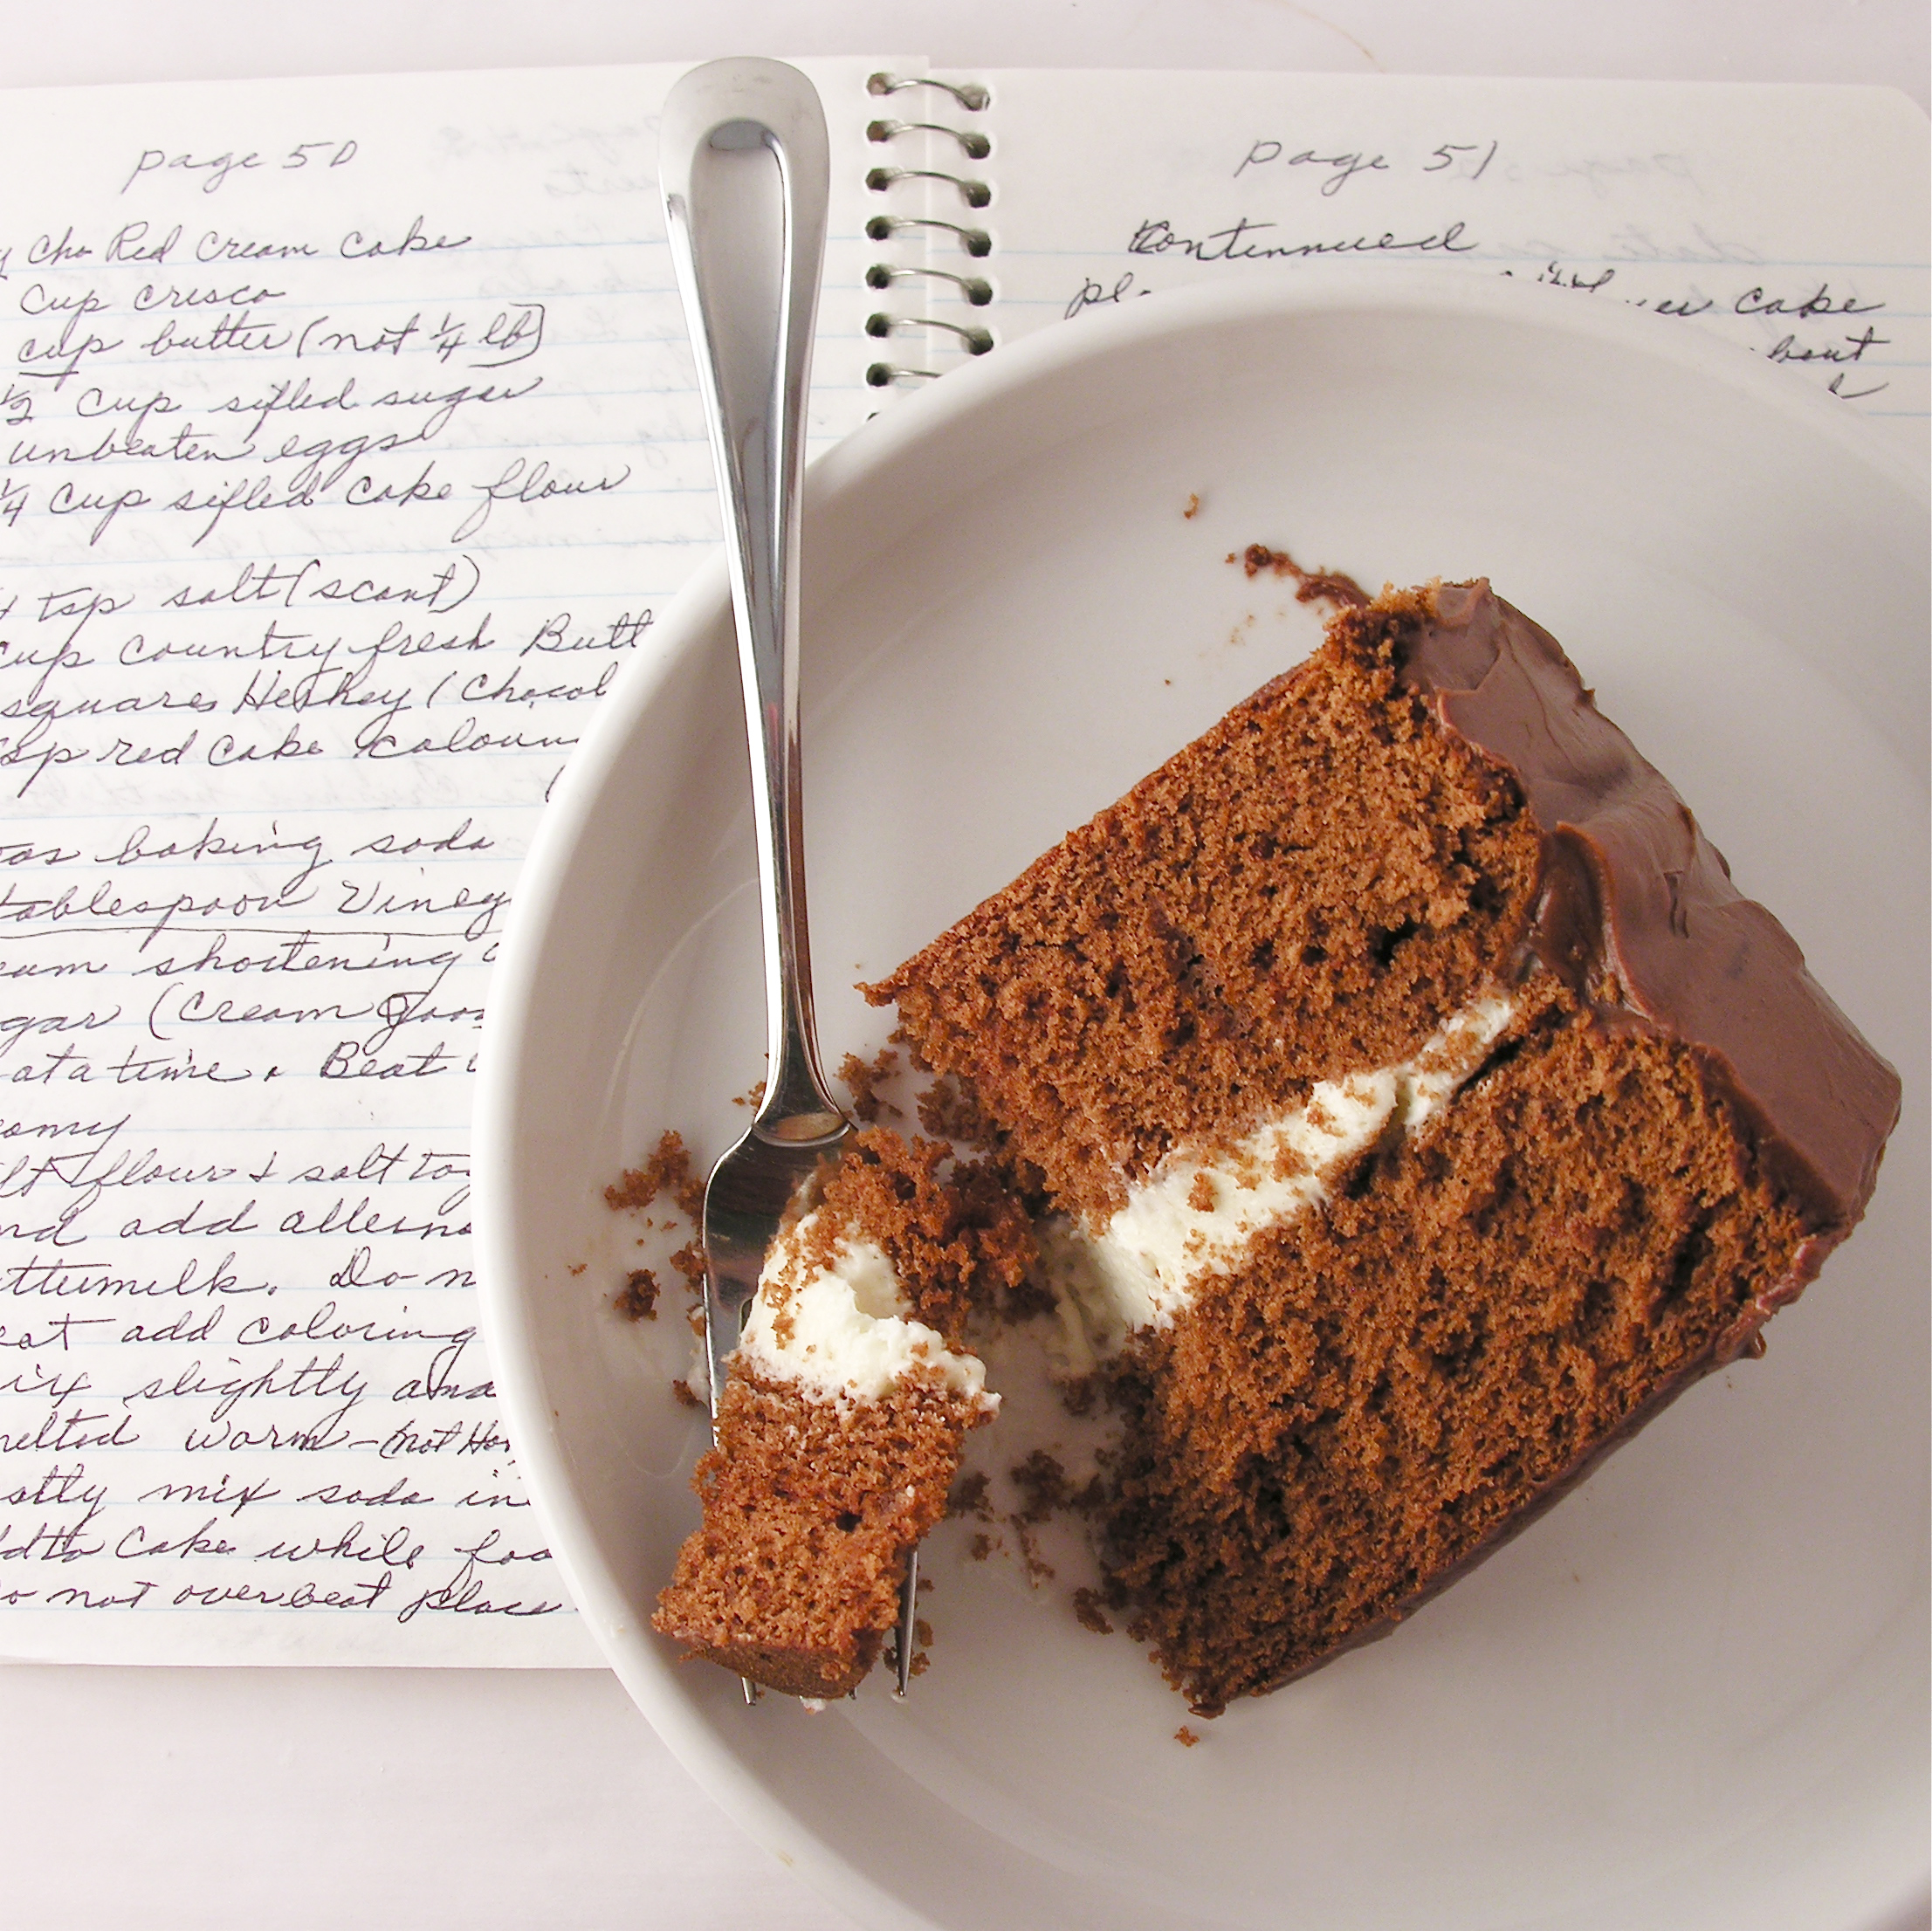 page 50
Cho Red Cream Cake
cup crisco
cup butter (not 1/4 lb)
1/2 cup sifted sugar
unbeaten eggs
1/4 cup sifted cake flour
tsp salt (scant)
cup country fresh Butt
squares Hershey (Chocol
tsp red cake colouri
baking soda
tablespoon Vineg
eam shortening
gar (cream good
at a time. Beat
eamy
ift flour + salt tog
nd add alterna
ttermilk. Do n
eat add coloring
ix slightly and
melted warm - (not Hot
stly mix soda in
dd to cake while foa
o not overbeat place
page 51
Contennued
pl
cake
bout